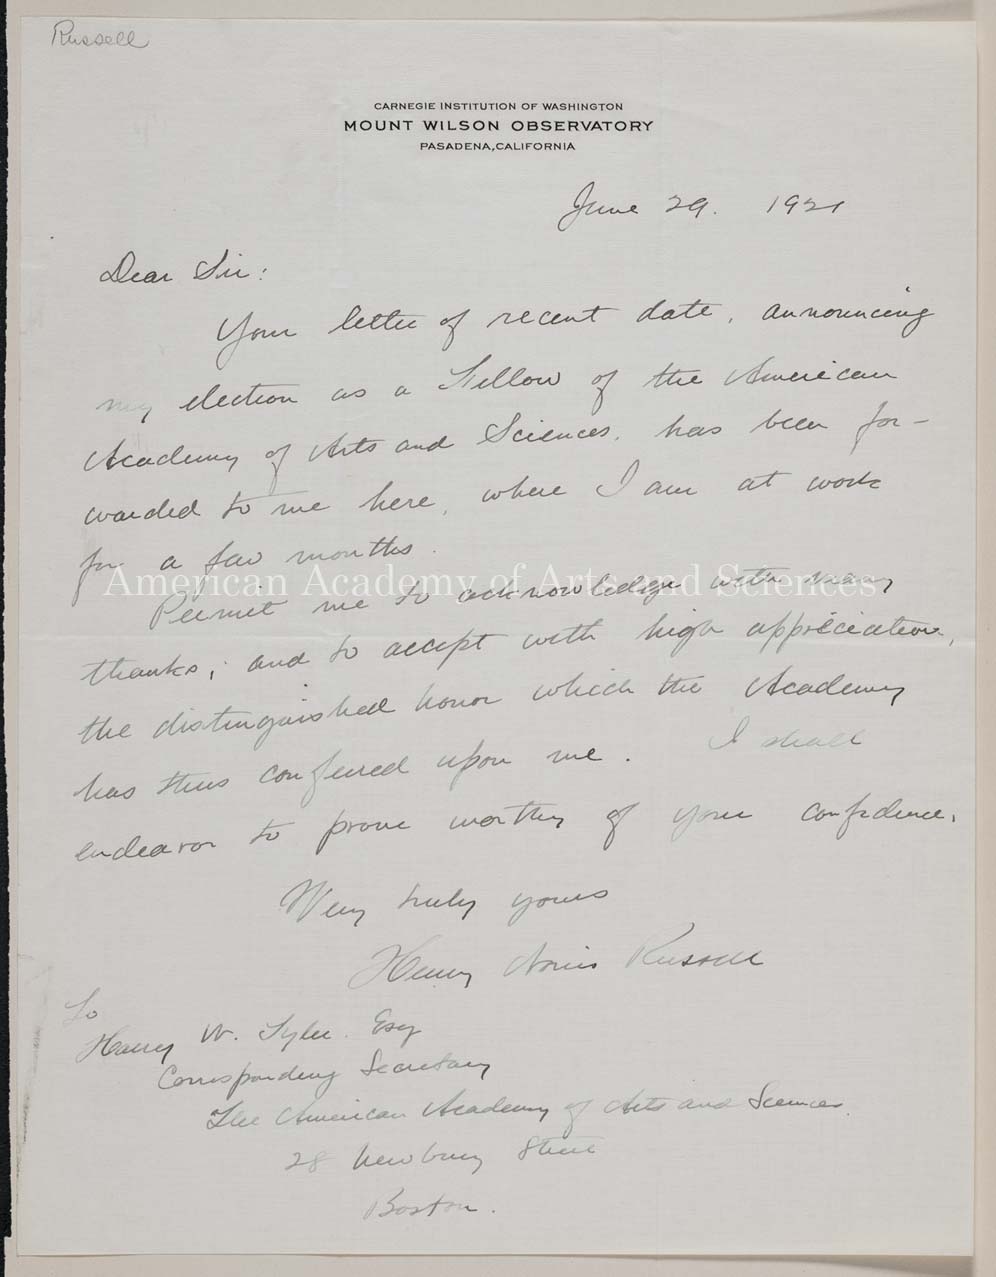 Russell
CARNEGIE INSTITUTION OF WASHINGTON
MOUNT WILSON OBSERVATORY
PASADENA, CALIFORNIA
June 29. 1921
Dear Sir:
Your letter of recent date, announcing
my election as a Fellow of the American
Academy of Arts and Sciences, has been for-
warded to me here, where I am at work
for a few months.
American Academy of Arts and Sciences
Permit me to acknowledge with many
thanks, and to accept with high appreciation,
the distinguished honor which the Academy
has thus conferred upon me. I shall
endeavor to prove worthy of your confidence.
Very truly yours
Henry Norris Russell
To
Harry W. Tyler. Esq
Corresponding Secretary
The American Academy of Arts and Sciences.
28 Newbury Street
Boston.